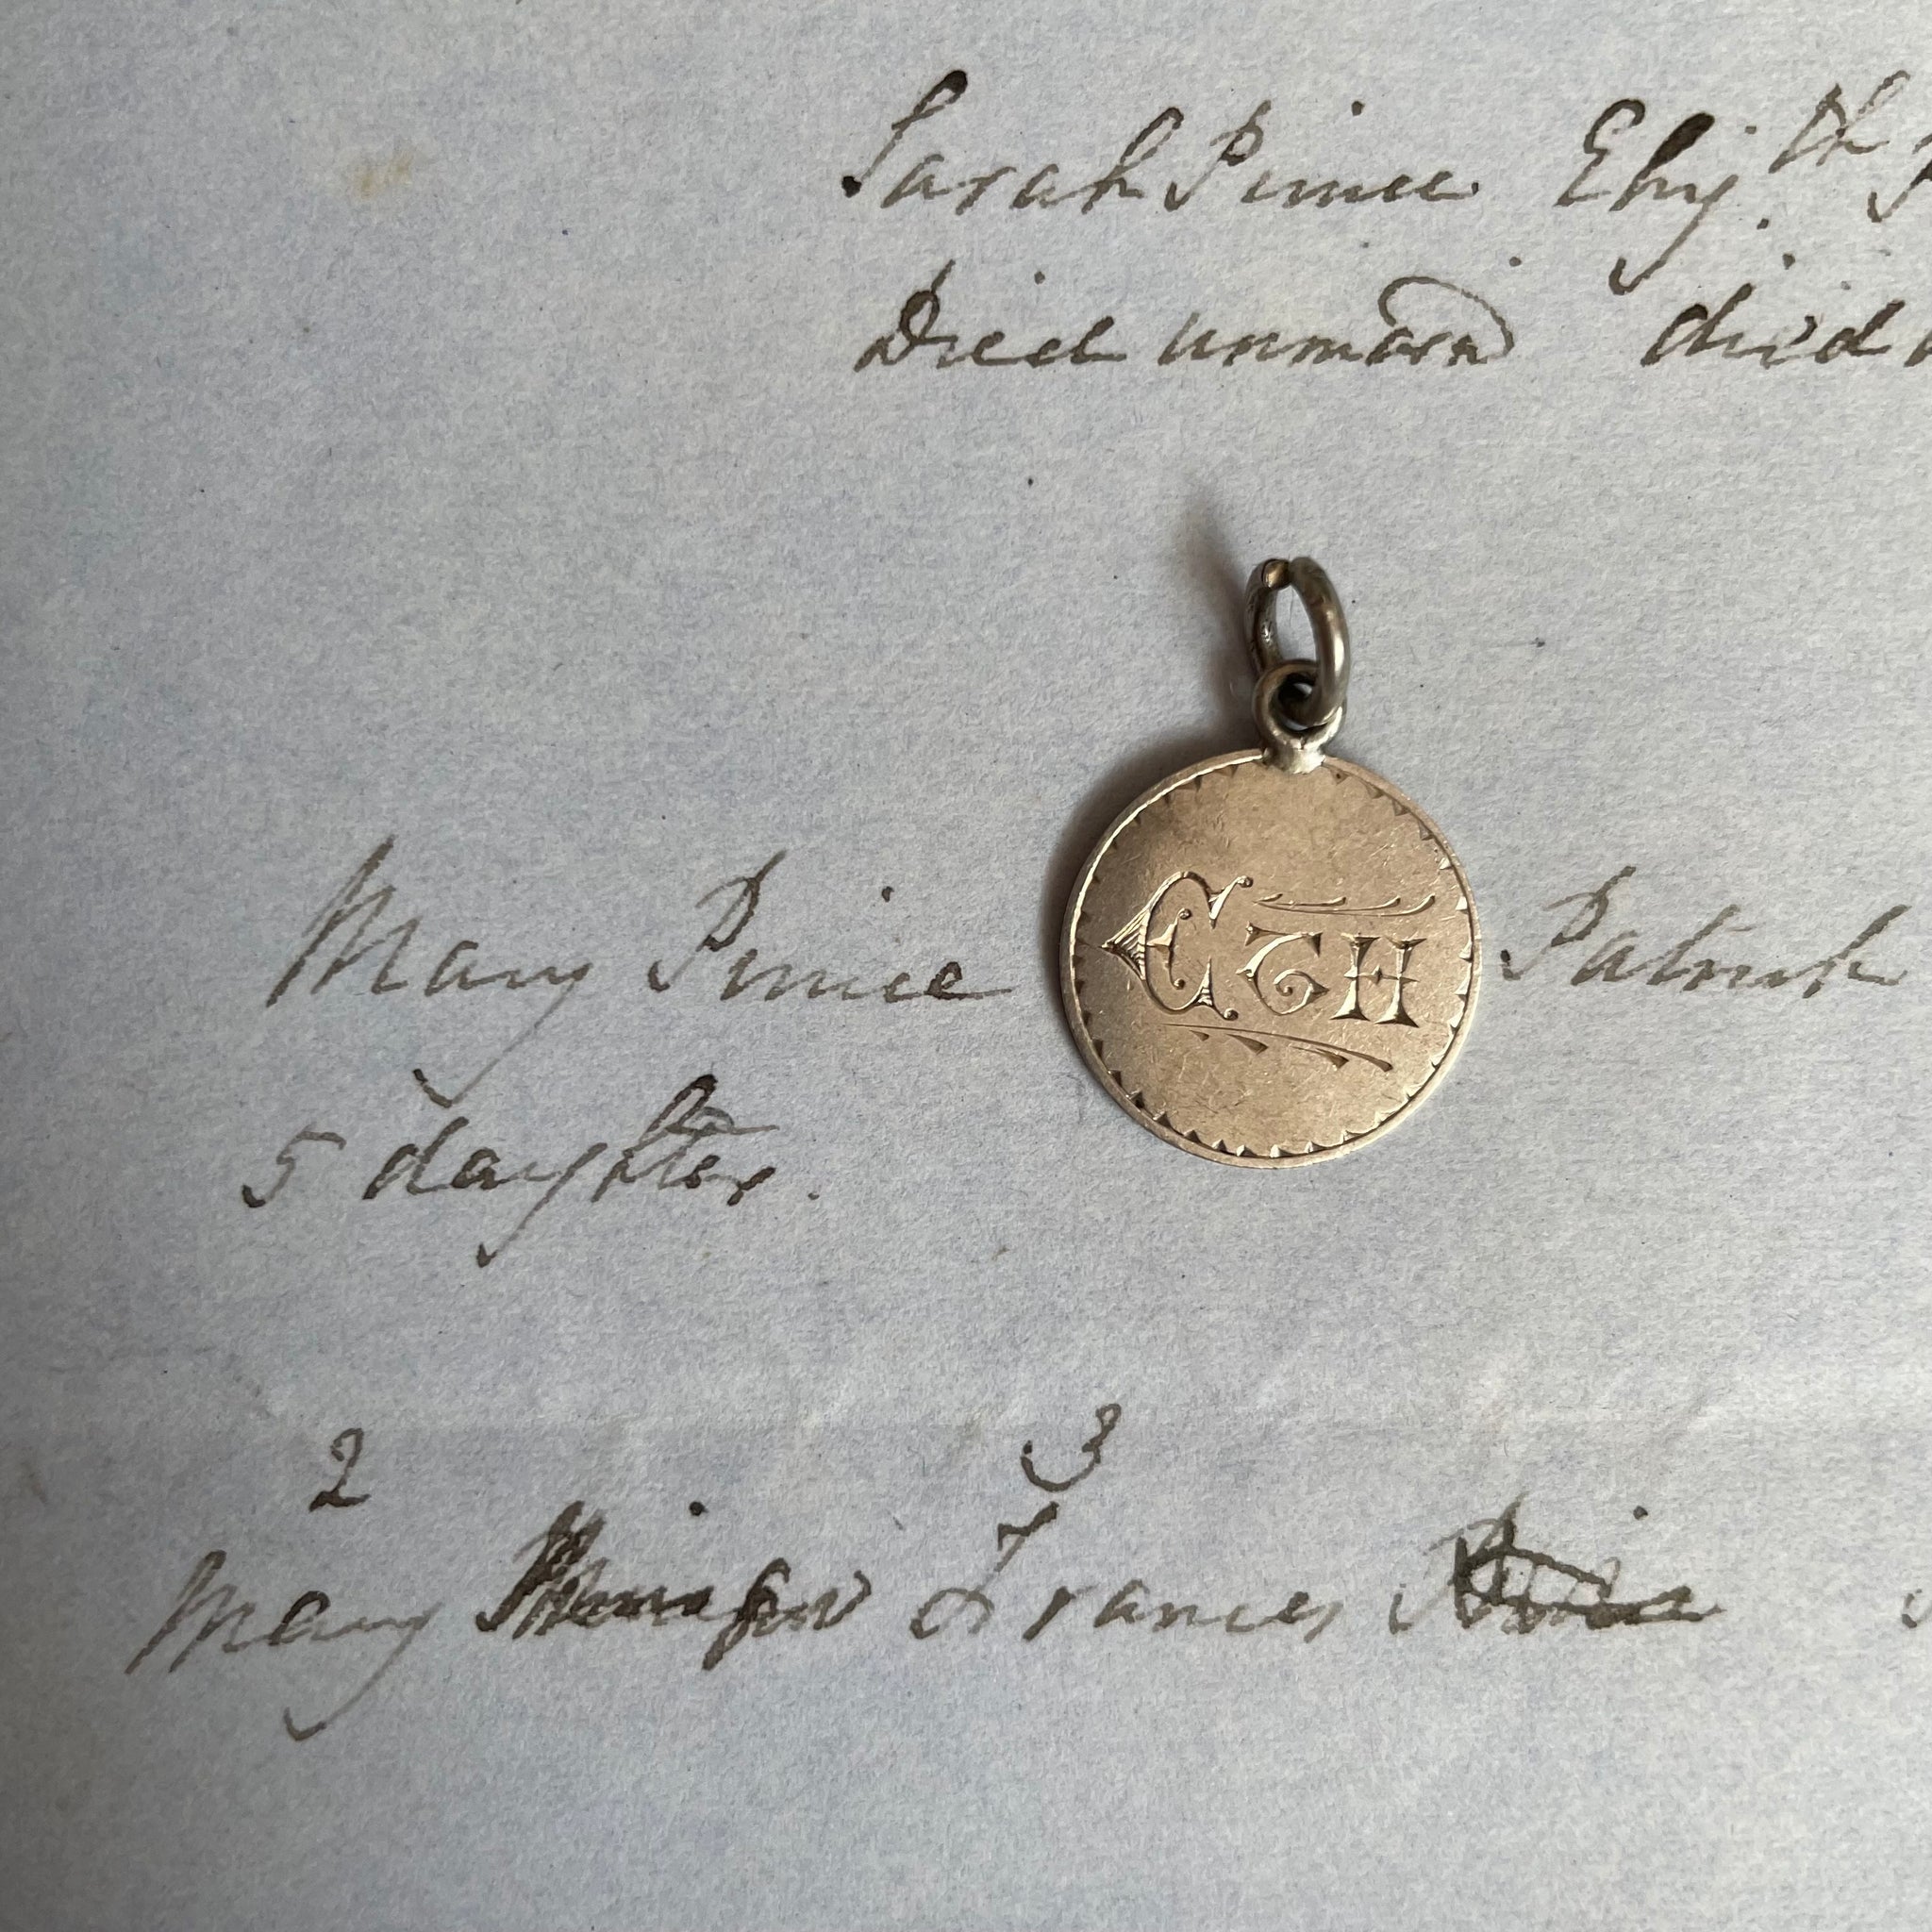 Sarah Pinnee Eliz.th
Died unmarrd died
Mary Pinnee
ETH
Patrick
5 daughter.
2 3
Mary Frances